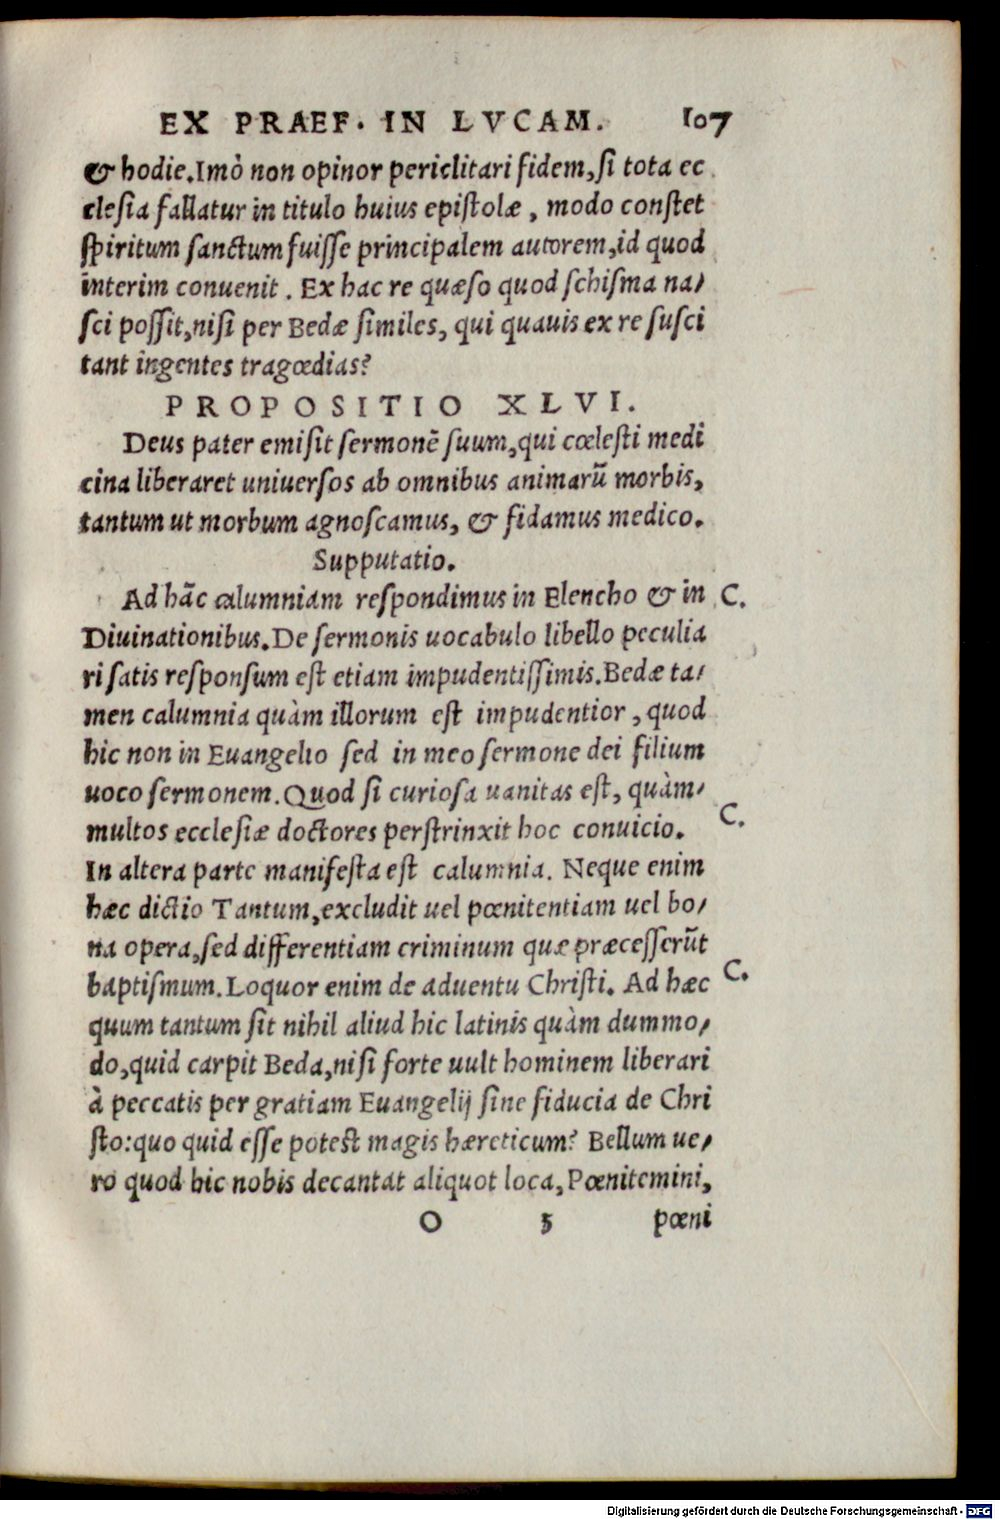 EX PRAEF. IN LVCAM. 107
& hodie. Imò non opinor periclitari fidem, si tota ec
clesia fallatur in titulo huius epistolæ, modo constet
spiritum sanctum fuisse principalem autorem, id quod
interim conuenit. Ex hac re quæso quod schisma na/
sci possit, nisi per Bedæ similes, qui quauis ex re susci
tant ingentes tragœdias?
PROPOSITIO XLVI.
Deus pater emisit sermonē suum, qui cœlesti medi
cina liberaret uniuersos ab omnibus animarū morbis,
tantum ut morbum agnoscamus, & fidamus medico.
Supputatio.
Ad hāc calumniam respondimus in Elencho & in C.
Diuinationibus. De sermonis uocabulo libello peculia
ri satis responsum est etiam impudentissimis. Bedæ ta/
men calumnia quàm illorum est impudentior, quod
hic non in Euangelio sed in meo sermone dei filium
uoco sermonem. Quod si curiosa uanitas est, quàm/
multos ecclesiæ doctores perstrinxit hoc conuicio. C.
In altera parte manifesta est calumnia. Neque enim
hæc dictio Tantum, excludit uel pœnitentiam uel bo/
na opera, sed differentiam criminum quæ præcesserūt
baptismum. Loquor enim de aduentu Christi. Ad hæc C.
quum tantum sit nihil aliud hic latinis quàm dummo/
do, quid carpit Beda, nisi forte uult hominem liberari
à peccatis per gratiam Euangelij sine fiducia de Chri
sto: quo quid esse potest magis hæreticum? Bellum ue/
ro quod hic nobis decantat aliquot loca, Pœnitemini,
O 5 pœni
Digitalisierung gefördert durch die Deutsche Forschungsgemeinschaft - DFG